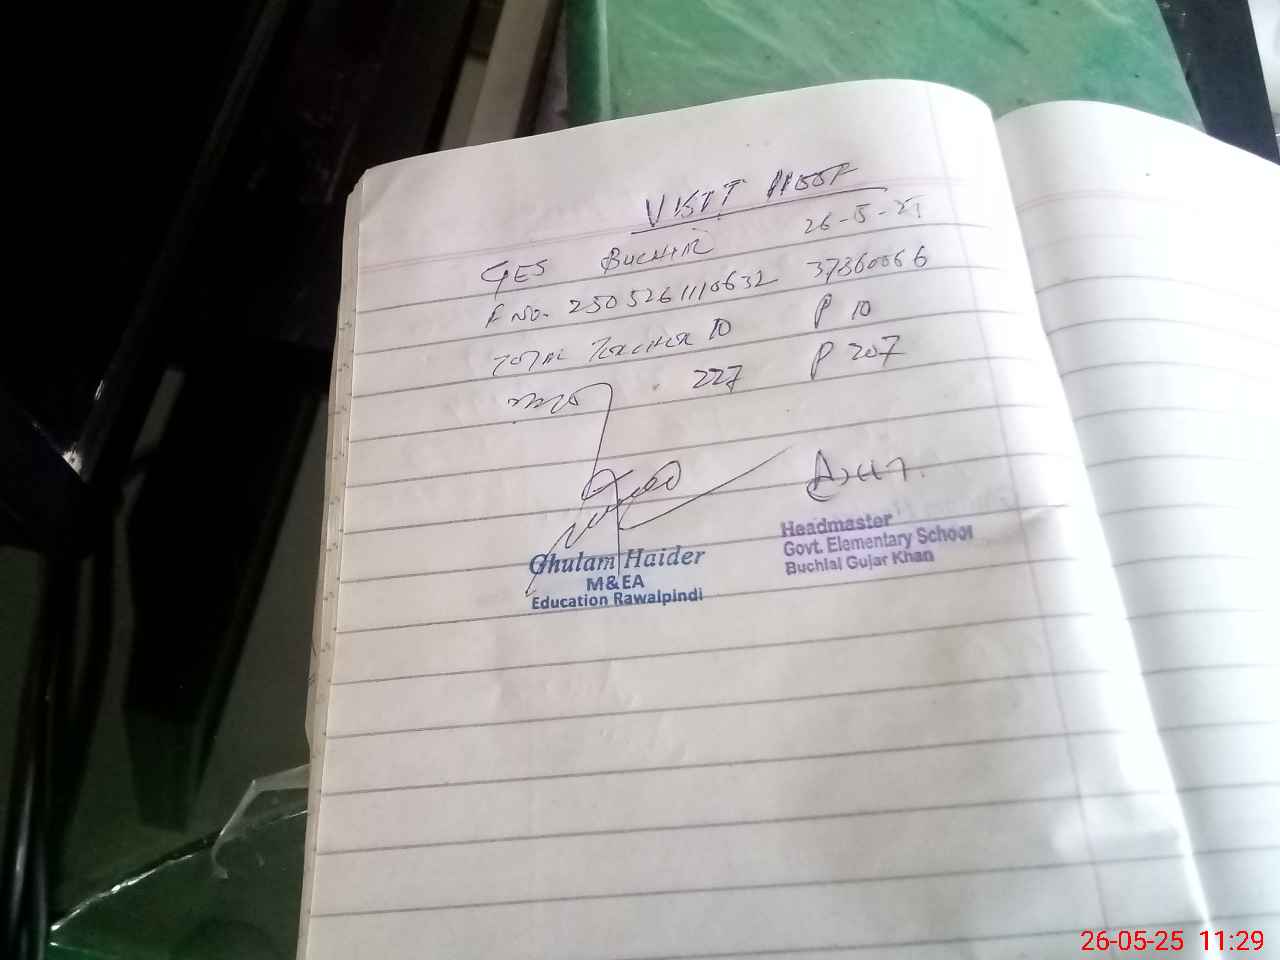 VISIT
GES BUCHIAL 26-5-25
F NO. 2505261110632 37360066
TOTAL TEACHER 10 P 10
227 P 207
Ghulam Haider
M&EA
Education Rawalpindi
Headmaster
Govt. Elementary School
Buchial Gujar Khan
26-05-25 11:29